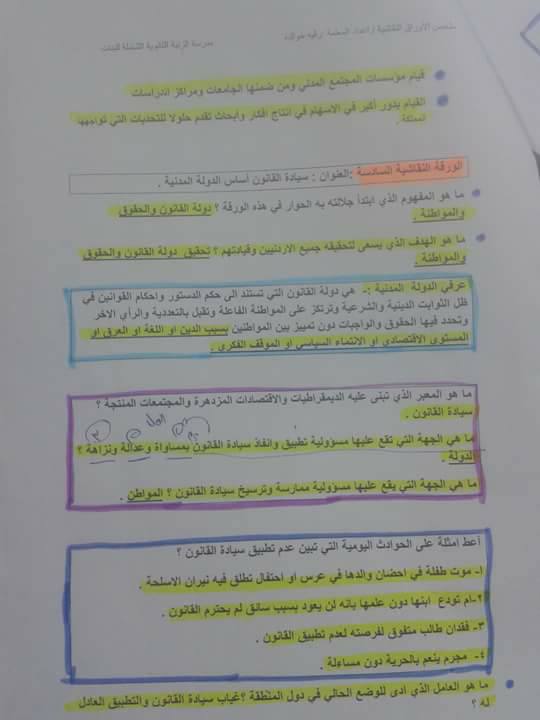 ملخص الاوراق النقاشية /اعداد المعلمة رقيه خوالده
مدرسة الثانوية الشاملة للبنات
قيام مؤسسات المجتمع المدني ومن ضمنها الجامعات ومراكز الدراسات
القيام بدور أكبر في الاسهام في انتاج افكار وابحاث تقدم حلولا للتحديات التي تواجهها
المملكة .
الورقة النقاشية السادسة :العنوان : سيادة القانون أساس الدولة المدنية .
ما هو المفهوم الذي ابتدأ جلالته به الحوار في هذه الورقة ؟ دولة القانون والحقوق
والمواطنة .
ما هو الهدف الذي يسعى لتحقيقه جميع الاردنيين وقيادتهم ؟ تحقيق دولة القانون والحقوق
والمواطنة .
عرفي الدولة المدنية :- هي دولة القانون التي تستند الى حكم الدستور واحكام القوانين في
ظل الثوابت الدينية والشرعية وترتكز على المواطنة الفاعلة وتقبل بالتعددية والرأي الاخر
وتحدد فيها الحقوق والواجبات دون تمييز بين المواطنين بسبب الدين او اللغة او العرق او
المستوى الاقتصادي او الانتماء السياسي او الموقف الفكري .
ما هو المعبر الذي تبنى عليه الديمقراطيات والاقتصادات المزدهرة والمجتمعات المنتجة ؟
سيادة القانون .
ما هي الجهة التي تقع عليها مسؤولية تطبيق وانفاذ سيادة القانون بمساواة وعدالة ونزاهة ؟
الدولة .
ما هي الجهة التي يقع عليها مسؤولية ممارسة وترسيخ سيادة القانون ؟ المواطن .
أعط امثلة على الحوادث اليومية التي تبين عدم تطبيق سيادة القانون ؟
١- موت طفلة في احضان والدها في عرس أو احتفال تطلق فيه نيران الاسلحة .
٢-ام تودع ابنها دون علمها بانه لن يعود بسبب سائق لم يحترم القانون .
٣- فقدان طالب متفوق لفرصته لعدم تطبيق القانون .
٤- مجرم ينعم بالحرية دون مساءلة .
ما هو العامل الذي أدى للوضع الحالي في دول المنطقة ؟غياب سيادة القانون والتطبيق العادل
له ؟